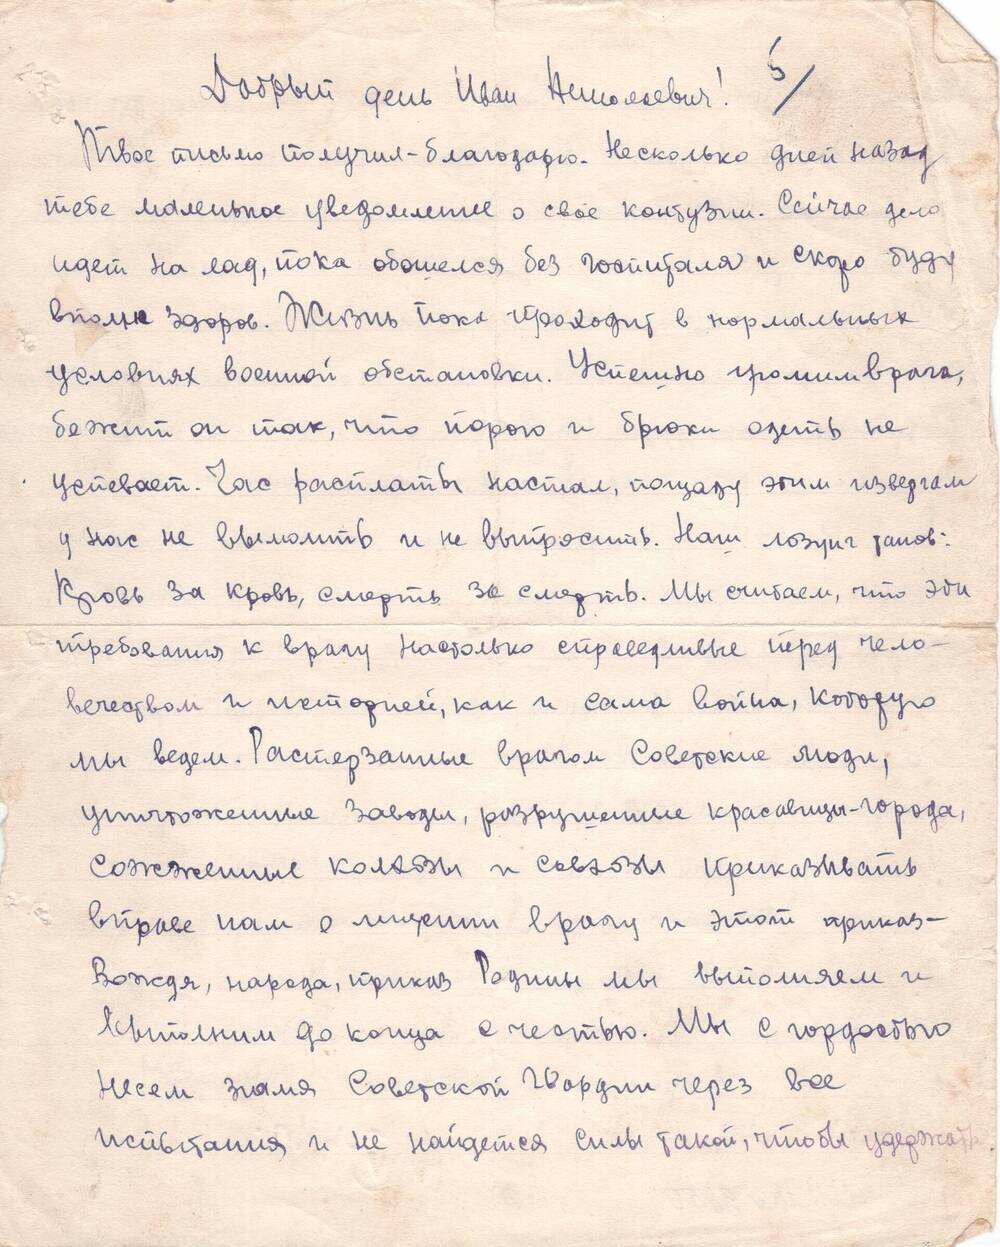 Добрый день Иван Николаевич! 5/
Твое письмо получил-благодарю. Несколько дней назад
тебе маленькое уведомление о свое контузии. Сейчас дело
идет на лад, пока обошелся без госпиталя и скоро буду
вполне здоров. Жизнь пока проходит в нормальных
условиях военной обстановки. Успешно громим врага,
бежит он так, что порою и брюки одеть не
успевает. Час расплаты настал, пощаду этим извергам
у нас не вымолить и не выпросить. Наш лозунг таков:
Кровь за кровь, смерть за смерть. Мы считаем, что эти
требования к врагу настолько справедливые перед чело-
вечеством и историей, как и сама война, которую
мы ведем. Растерзанные врагом Советские люди,
уничтоженные заводы, разрушенные красавицы-города,
сожженные колхозы и совхозы приказывать
вправе нам о мщении врагу и этот приказ-
Вождя, народа, приказ Родины мы выполняем и
выполним до конца с честью. Мы с гордостью
несем знамя Советской Гвардии через все
испытания и не найдется силы такой, чтобы удержать